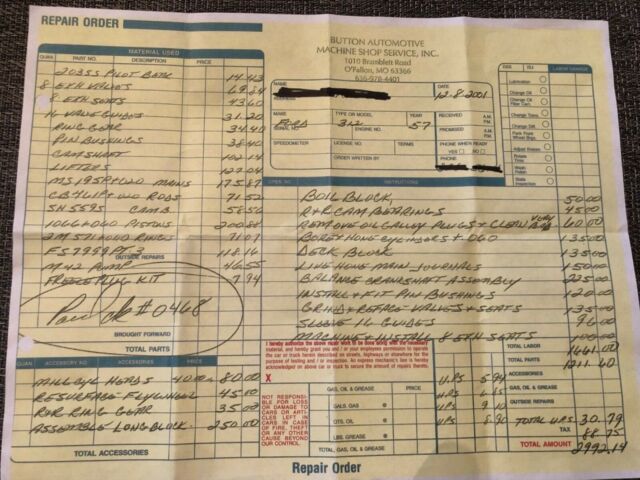 REPAIR ORDER
BUTTON AUTOMOTIVE
MACHINE SHOP SERVICE, INC.
1010 Bramblett Road
O'Fallon, MO 63366
636-978-4401
MATERIAL USED
QUAN. PART NO. DESCRIPTION PRICE
PILOT 14.43
8 EXH VALVES 69.84
8 EXH SEATS 43.60
16 VALVE GUIDES 31.20
RING GEAR 34.40
PIN BUSHINGS 38.40
CAMSHAFT 102.14
LIFTERS 127.04
MS195P+020 MAINS 175.87
CB411P+020 RODS 71.52
SH559S CAMB 58.56
1066+060 PISTONS 200.88
2M571+060 RINGS 71.07
FS7999PT-3 118.16
OUTSIDE REPAIRS
M42 PUMP 46.55
FREEZE PLUG KIT 7.94
#0468
BROUGHT FORWARD
TOTAL PARTS
NAME
ADDRESS
DATE
12-8-2001
MAKE
FORD
TYPE OR MODEL
312
YEAR
57
RECEIVED A.M. P.M.
SERIAL NO.
ENGINE NO.
PROMISED A.M. P.M.
SPEEDOMETER
LICENSE NO.
TERMS
PHONE WHEN READY
YES NO
ORDER WRITTEN BY
PHONE
LABOR CHARGE
Lubrication
Change Oil
Change Oil Filter Cart.
Change Trans.
Change Diff.
Pack Front Wheel Brgs.
Adjust Brakes
Rotate Tires
Wash Polish
State Inspection
OPER. NO. INSTRUCTIONS
BOIL BLOCK, 50.00
R+R CAM BEARINGS 45.00
REMOVE OIL GALLOY PLUGS + CLEAN VERY 60.00
BORE + HONE CYLINDERS + .060 135.00
DECK BLOCK 135.00
LINE HONE MAIN JOURNALS 150.00
BALANCE CRANKSHAFT ASSEMBLY 225.00
INSTALL + FIT PIN BUSHINGS 120.00
GRIND + REFACE VALVES + SEATS 135.00
SLEEVE 16 GUIDES 96.00
MACHINE + INSTALL 8 EXH SEATS 100.00
I hereby authorize the above repair work to be done along with the necessary
material, and hereby grant you and / or your employees permission to operate
the car or truck herein described on streets, highways or elsewhere for the
purpose of testing and / or inspection. An express mechanic's lien is hereby
acknowledged on above car or truck to secure the amount of repairs thereto.
X
TOTAL LABOR 1661.00
TOTAL PARTS 1211.60
QUAN. ACCESSORIES PRICE
MILL CYL HEADS 40.00 EA 80.00
RESURFACE FLYWHEEL 45.00
R+R RING GEAR 35.00
ASSEMBLE LONG BLOCK 250.00
TOTAL ACCESSORIES
NOT RESPONSIBLE
FOR LOSS
OR DAMAGE TO
CARS OR ARTICLES
LEFT IN
CARS IN CASE
OF FIRE, THEFT
OR ANY OTHER
CAUSE BEYOND
OUR CONTROL.
GAS, OIL & GREASE
GALS. GAS @
QTS. OIL @
LBS. GREASE @
TOTAL, GAS, OIL & GREASE
UPS 5.94
UPS
UPS 9.10
UPS 8.90
ACCESSORIES
GAS, OIL & GREASE
OUTSIDE REPAIRS
TOTAL UPS 30.79
TAX 88.75
TOTAL AMOUNT 2992.14
Repair Order